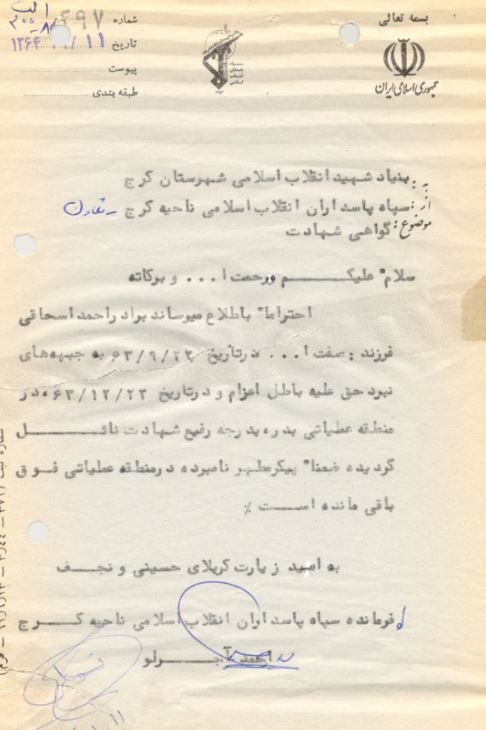 بسمه تعالی
جمهوری اسلامی ایران
شماره ۶۹۷
تاریخ ۱۳۶۴/ /۱۱
پیوست
طبقه بندی
به: بنیاد شهید انقلاب اسلامی شهرستان کرج
از: سپاه پاسداران انقلاب اسلامی ناحیه کرج - تعاون
موضوع: گواهی شهادت
سلام" علیکم ورحمت ا... و برکاته
احتراما" باطلاع میرساند برادر احمد اسحاقی
فرزند: صفت ا... درتاریخ ۶۳/۹/۲۲ به جبهه‌های
نبرد حق علیه باطل اعزام و درتاریخ ۶۳/۱۲/۲۳، در
منطقه عملیاتی بدر، بدرجه رفیع شهادت نائل
گردیده ضمنا" پیکرمطهر نامبرده درمنطقه عملیاتی فوق
باقی مانده است ٪
به امید زیارت کربلای حسینی و نجف
فرمانده سپاه پاسداران انقلاب اسلامی ناحیه کرج
احمد آجرلو